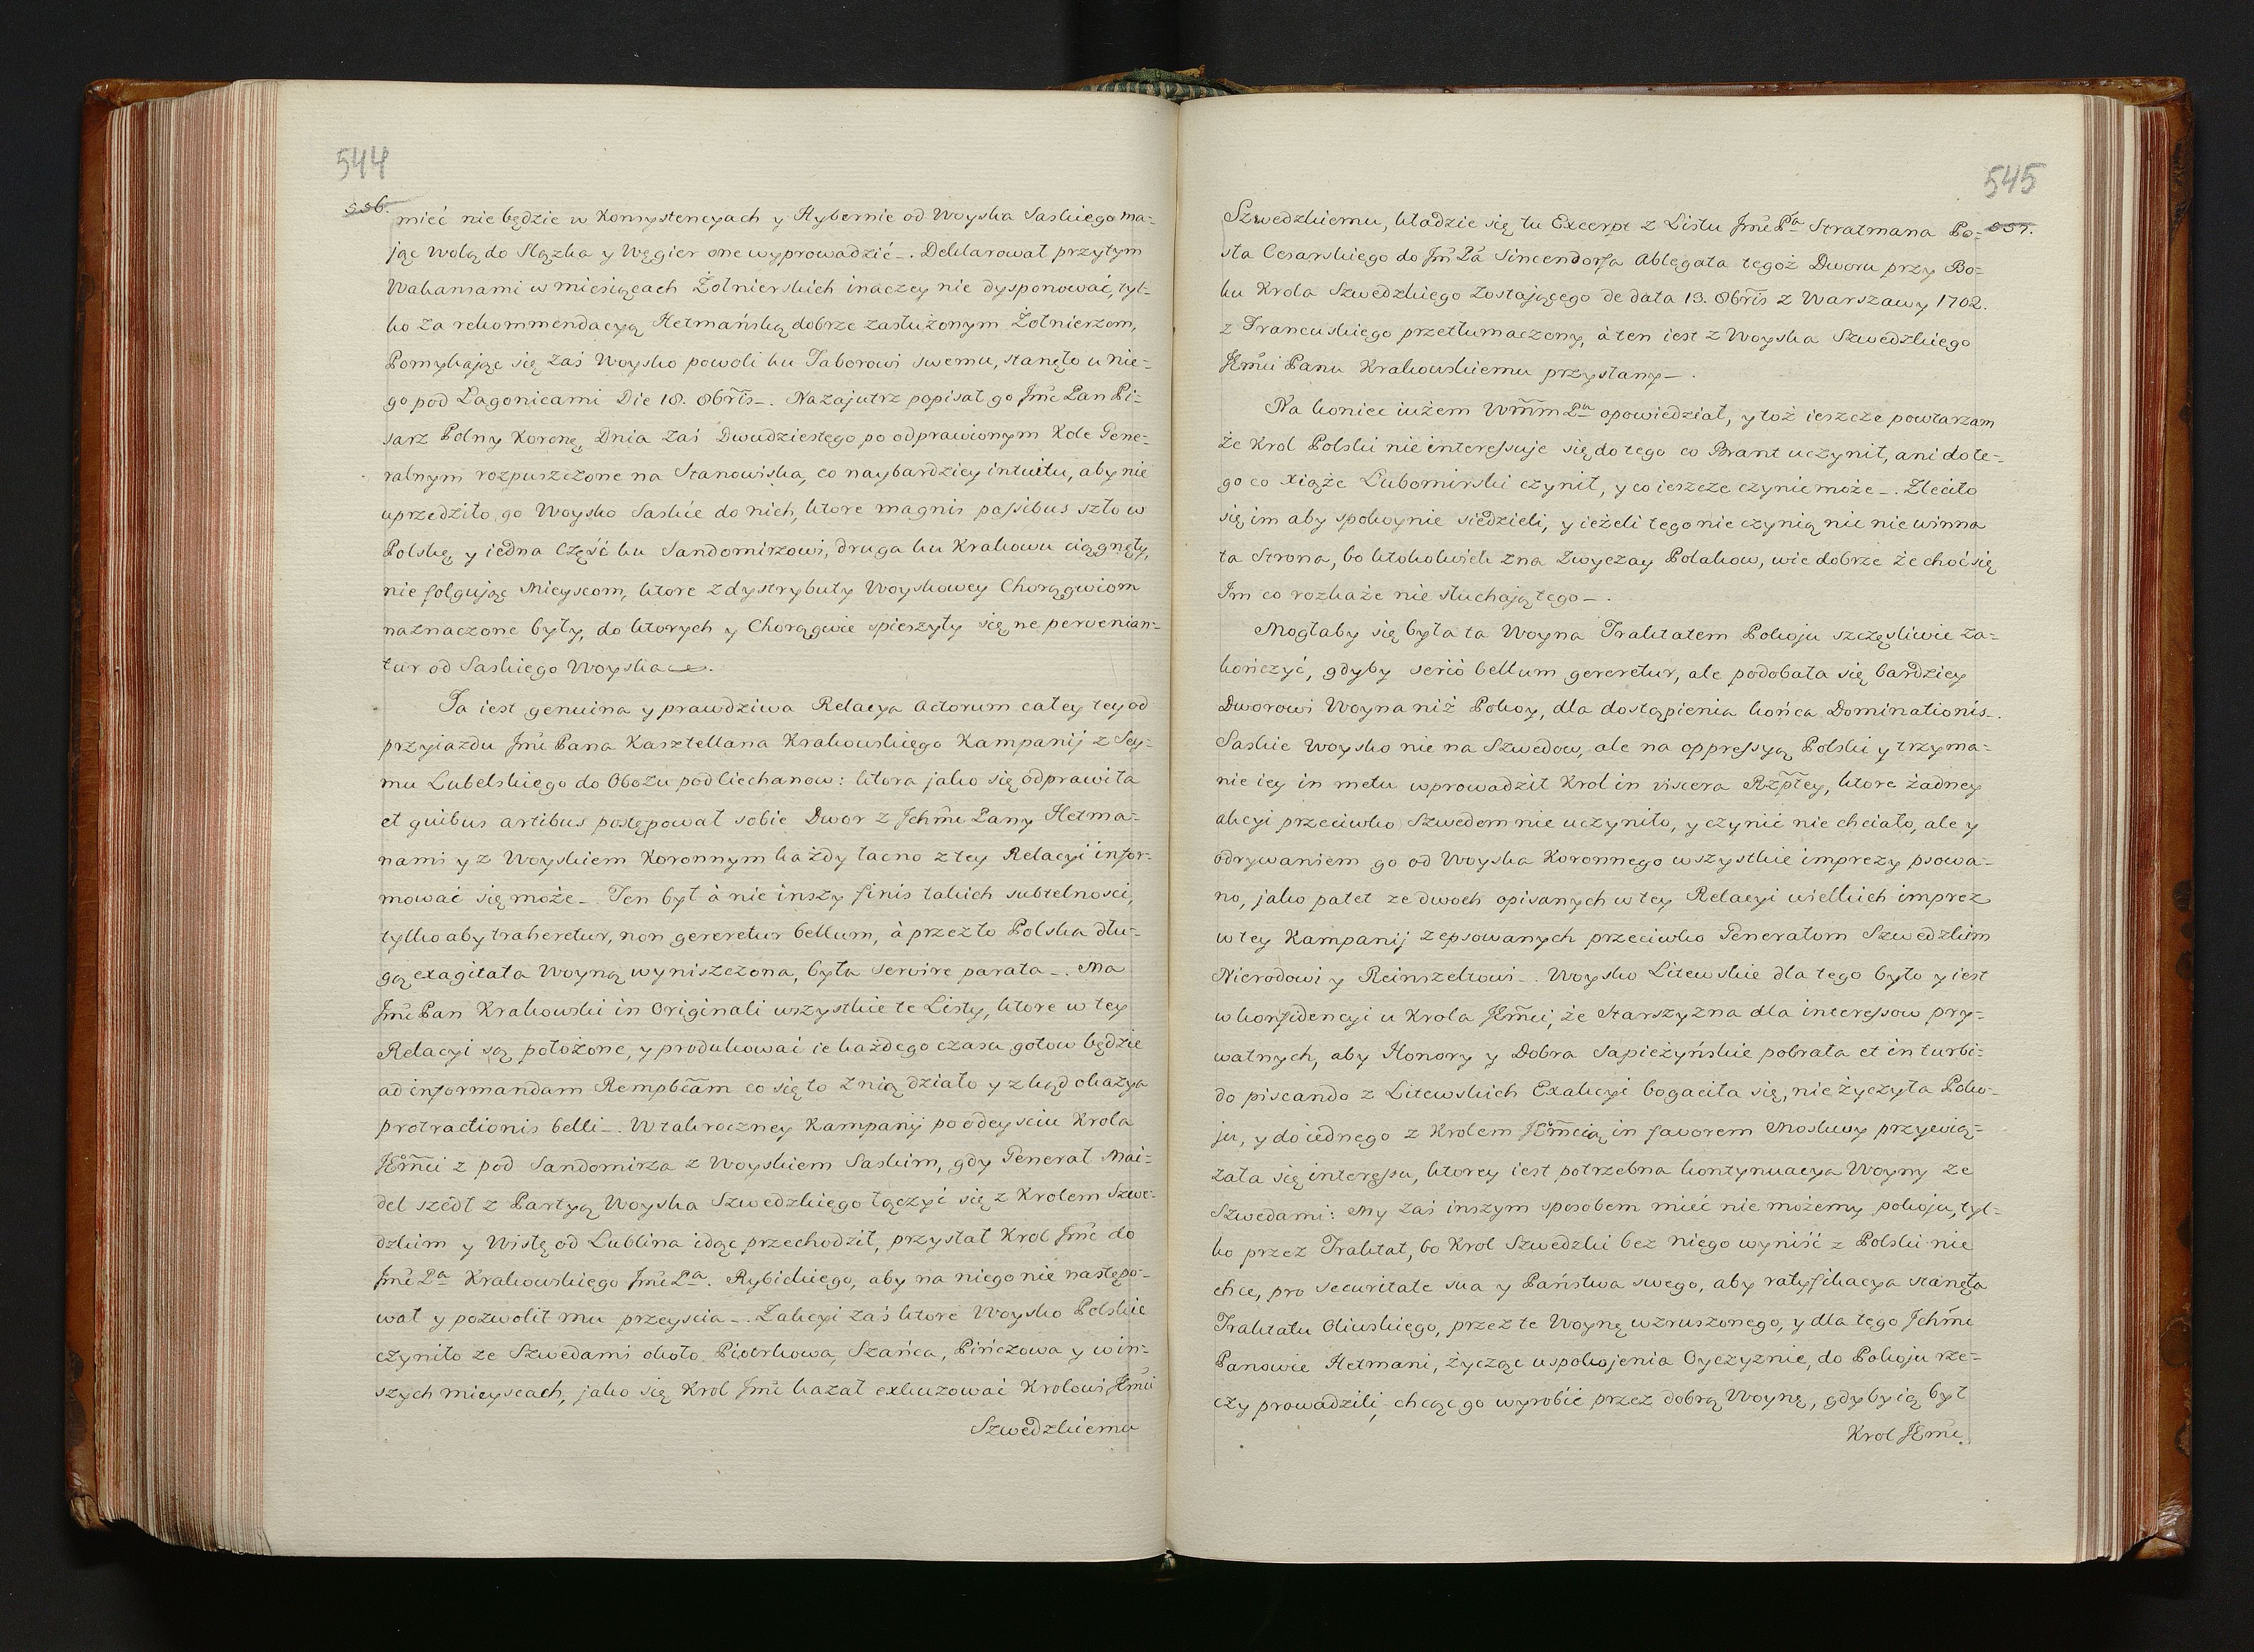 544
556.
mieć nie będzie w Konsystencyach y Hybernie od Woyska Saskiego ma-
jąc wolą do Slązka y Węgier one wyprowadzić_. Deklarował przytym
Wakansami w miesiącach Żołnierskich inaczey nie dysponować, tyl-
ko za rekommendacyą Hetmańską dobrze zasłużonym Żołnierzom,
Pomykając się zaś Woysko powoli ku Taborowi swemu, stanęło u nie-
go pod Łagonicami Die 18. 8bris_. Nazajutrz popisał go Jmć Pan Pi-
sarz Polny Koronę, Dnia zaś Dwudziestego po odprawionym Kole Gene-
ralnym rozpuszczone na Stanowiska, co naybardziey intuitu, aby nie
uprzedziło go Woysko Saskie do nich, ktore magnis passibus szło w
Polskę, y iedna Część ku Sandomirzowi, druga ku Krakowu ciągnęły,
nie folgując Mieyscom, ktore z dystrybuty Woyskowey Chorągwiom
naznaczone były, do ktorych y Chorągwie spieszyły się ne pervenian-
tur od Saskiego Woyska.
Ta iest genuina y prawdziwa Relacya Actorum całey tey od
przyiazdu Jmć Pana Kasztellana Krakowskiego Kampanij z Sey-
mu Lubelskiego do Obozu pod Ciechanow: ktora jako się odprawiła
et quibus artibus postępował sobie Dwor z Ichmć Pany Hetma-
nami y z Woyskiem Koronnym każdy łacno z tey Relacyi infor-
mować się może_. Ten był à nie inszy finis takich subtelnosci,
tylko aby traheretur, non gereretur bellum, à przez to Polska dłu-
gą exagitata Woyną wyniszczona, była servire parata_. Ma
Jmć Pan Krakowski in Originali wszystkie te Listy, ktore w tey
Relacyi są położone, y produkować ie każdego czasu gotow będzie
ad informandam Rempbcam co się to z nią działo y zkąd okazya
protractionis belli_. W takroczney Kampanij po odeysciu Krola
JEmci z pod Sandomirza z Woyskiem Saskim, gdy Generał Mai-
del szedł z Partyą Woyska Szwedzkiego łączyć się z Krolem Szwe-
dzkim y Wisłę od Lublina idąc przechodził, przysłał Krol Jmć do
Jmć Pa Krakowskiego Jmć Pa. Rybickiego, aby na niego nie następo-
wał y pozwolił mu przeyscia_. Zakcyi zaś ktore Woysko Polskie
czyniło ze Szwedami około Piotrkowa, Szańca, Pińczowa y w in-
szych mieyscach, jako się Krol Jmć kazał exkuzować Krolowi JEmci
Szwedzkiemu
545
557.
Szwedzkiemu, kładzie się tu Excerpt z Listu Jmć Pa Stratmana Po-
sła Cesarskiego do Jmć Pa Sincendorfa Ablegata tegoż Dworu przy Bo-
ku Krola Szwedzkiego zostającego de data 13. 8bris z Warszawy 1702.
z Francuskiego przetłumaczony, à ten iest z Woyska Szwedzkiego
JEmci Panu Krakowskiemu przysłany_.
Na koniec iużem Wmm Pu opowiedział, y toż ieszcze powtarzam
że Krol Polski nie interessuje się do tego co Brant uczynił, ani do te-
go co Xiąże Lubomirski czynił, y co ieszcze czynić może_. Zleciło
się im aby spokoynie siedzieli, y ieżeli tego nie czynią nic nie winna
ta Strona, bo ktokolwiek zna Zwyczay Polakow, wie dobrze że choć się
Im co rozkaże nie słuchają tego_.
Mogłaby się była ta Woyna Traktatem Pokoju szczęsliwie za-
kończyć, gdyby seriò bellum gereretur, ale podobała się bardziey
Dworowi Woyna niż Pokoy, dla dostąpienia końca Dominationis_.
Saskie Woysko nie na Szwedow, ale na oppressyą Polski y trzyma-
nie iey in metu wprowadził Krol in viscera Rzptey, ktore żadney
akcyi przeciwko Szwedom nie uczyniło, y czynić nie chciało, ale y
odrywaniem go od Woyska Koronnego wszystkie imprezy psowa-
no, jako patet ze dwoch opisanych w tey Relacyi wielkich imprez
w tey Kampanij zepsowanych przeciwko Generałom Szwedzkim
Nierodowi y Reinszeltowi_. Woysko Litewskie dla tego było y iest
w konfidencyi u Krola JEmci, że Starszyzna dla interessow pry-
watnych, aby Honory y Dobra Sapieżyńskie pobrała et in turbi-
do piscando z Litewskich Exakcyi bogaciła się, nie życzyła Poko-
ju, y do iednego z Krolem JEmcią in favorem Moskwy przywią-
zała się interessu, ktorey iest potrzebna kontynuacya Woyny ze
Szwedami: My zaś inszym sposobem mieć nie możemy pokoju, tyl-
ko przez Traktat, bo Krol Szwedzki bez niego wyniść z Polski nie
chce, pro securitate sua y Państwa swego, aby ratyfikacya stanęła
Traktatu Oliwskiego, przez te Woynę wzruszonego, y dla tego Ichmć
Panowie Hetmani, życząc uspokojenia Oyczyznie, do Pokoju rze-
czy prowadzili, chcąc go wyrobić przez dobrą Woynę, gdyby ią był
Krol JEmć.